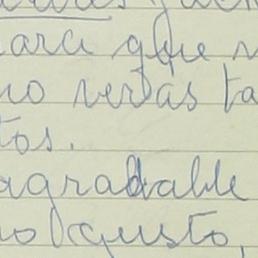 para que n
no verás ta
tos.
agradable
no gusto,